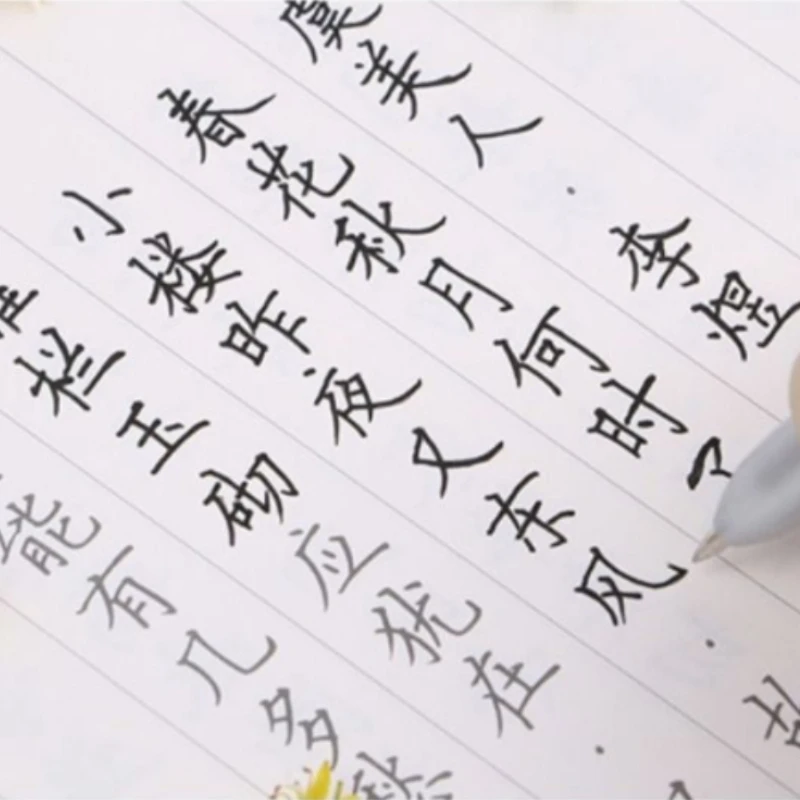 虞美人·李煜
春花秋月何时了
小楼昨夜又东风·故
栏玉砌应犹在·
能有几多愁